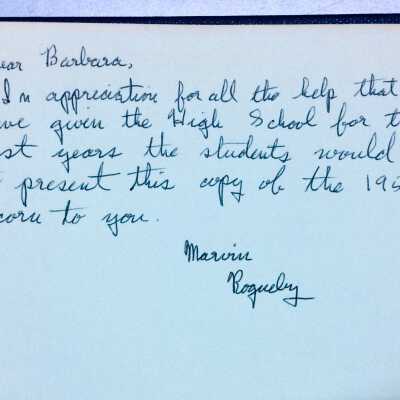 ear Barbara,
In appreciation for all the help that
ve given the High School for t
st years the students would
present this copy of the 195
corn to you.
Marvin
Rogueby